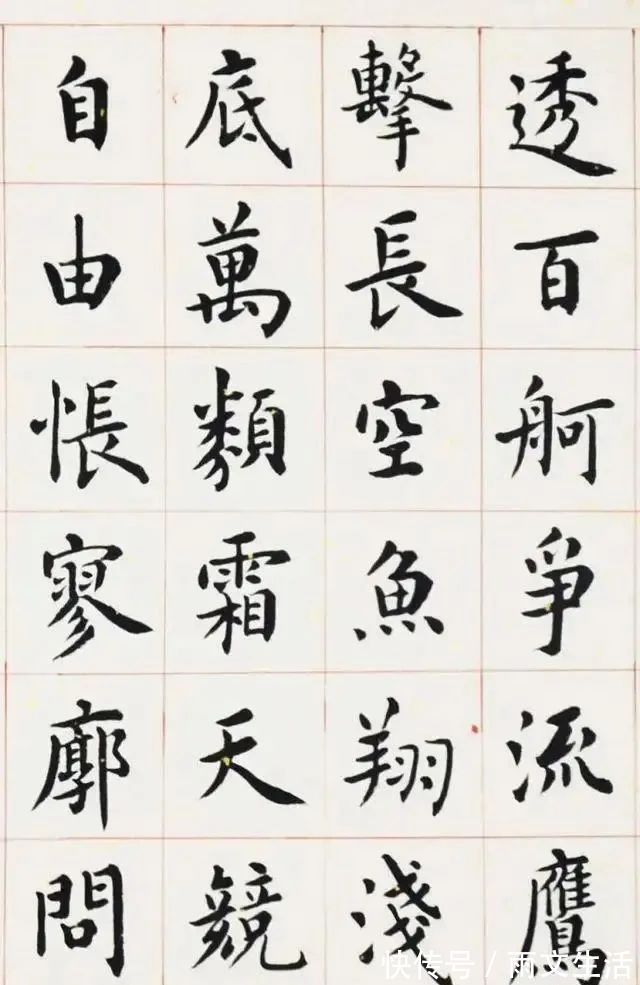 透百舸爭流鷹
擊長空魚翔淺
底萬類霜天競
自由悵寥廓問
快传号/雨文生活